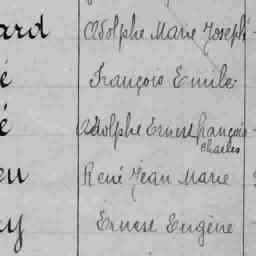 ard Adolphe Marie Joseph
é François Emile
é Adolphe Ernest François
Charles
eu René Jean Marie
ey Ernest Eugène